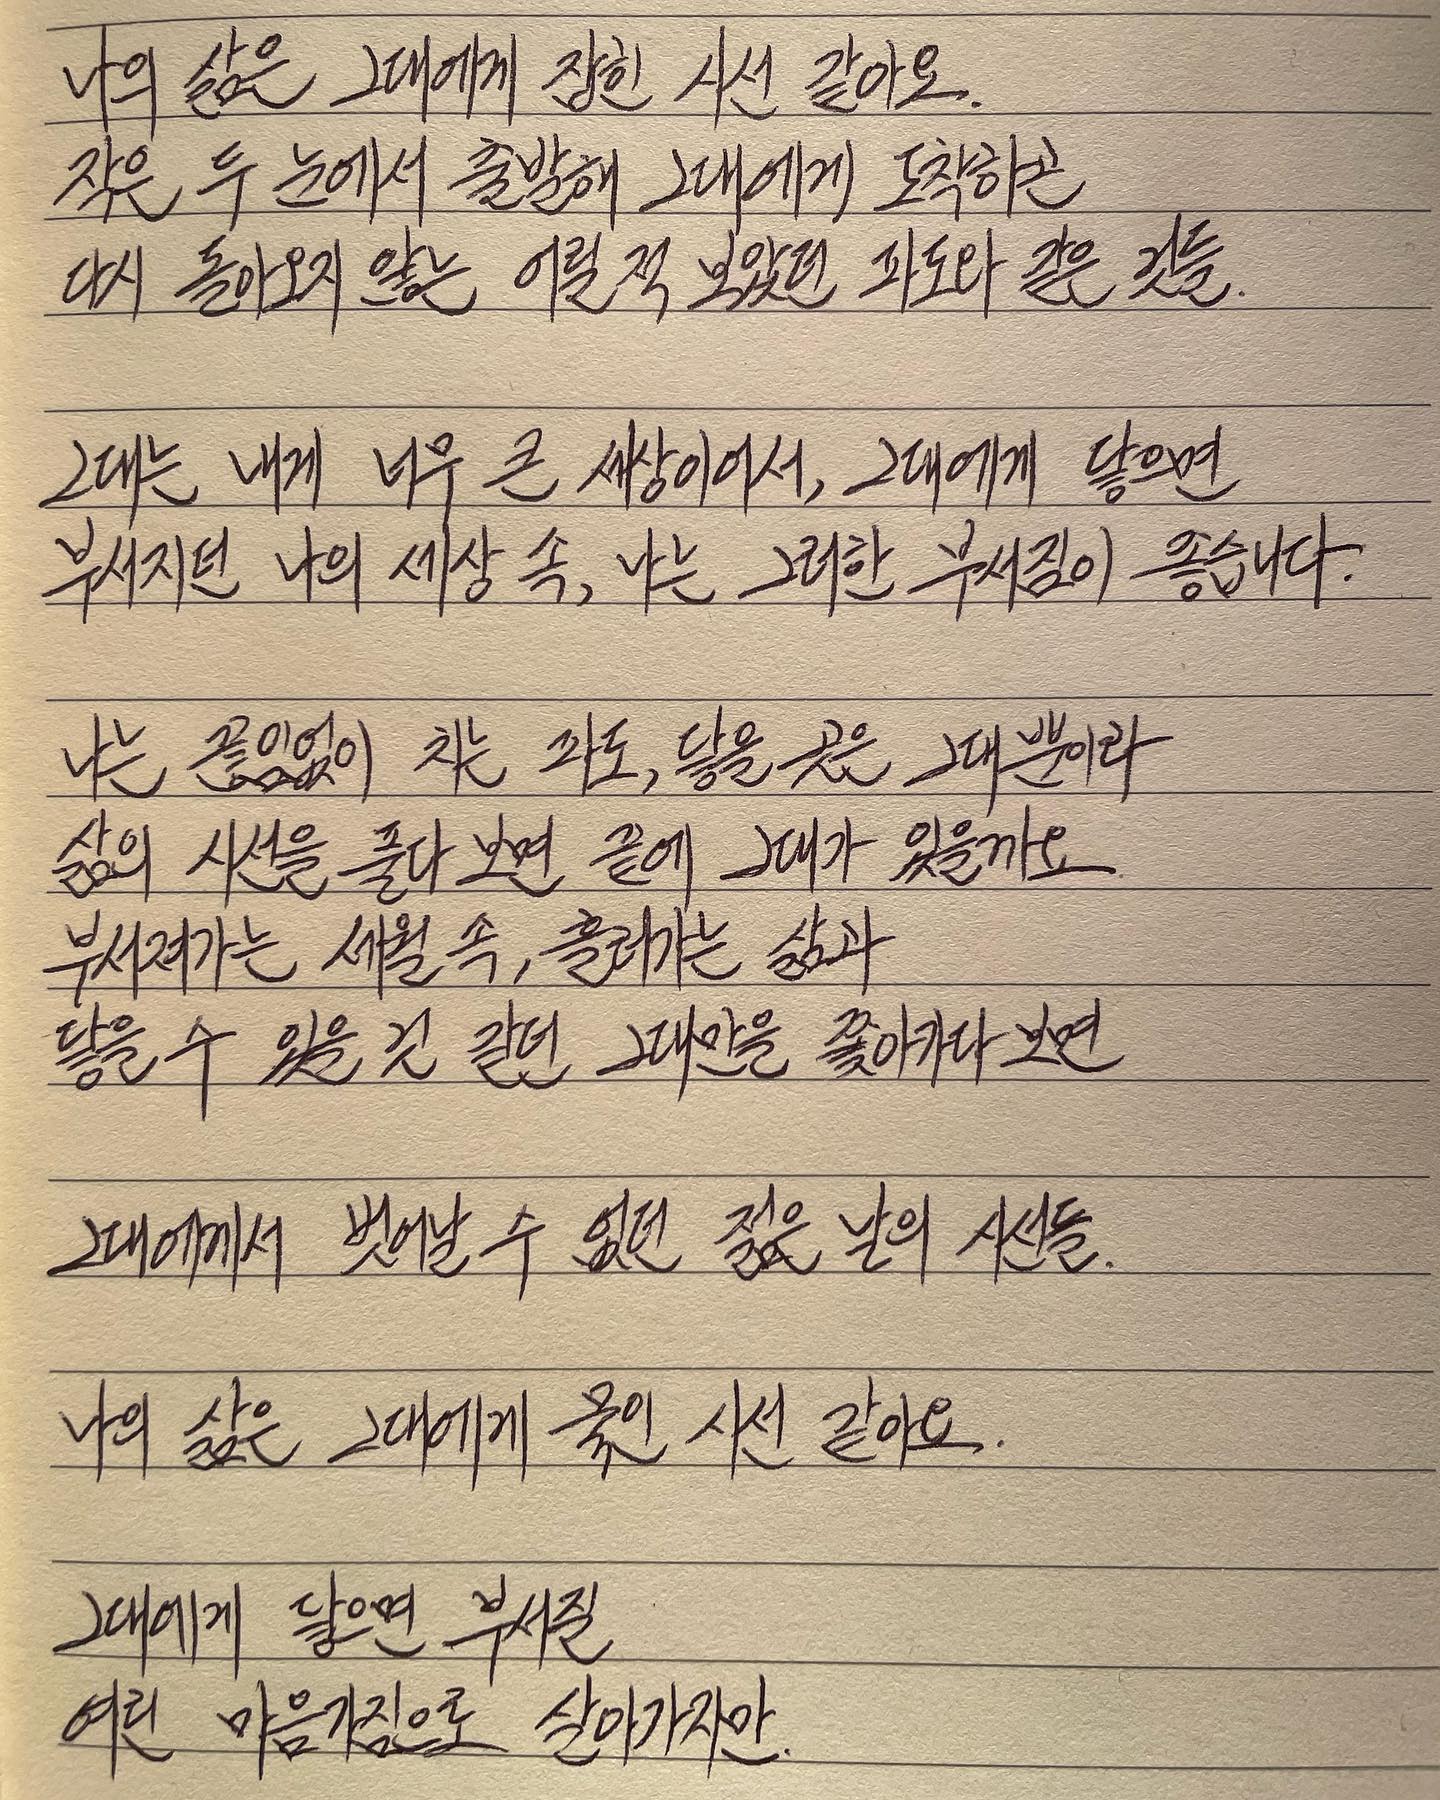 나의 삶은 그대에게 잡힌 시선 같아요.
작은 두 눈에서 출발해 그대에게 도착하곤
다시 돌아오지 않는 어릴 적 보았던 파도와 같은 것들.
그대는 내게 너무 큰 세상이어서, 그대에게 닿으면
부서지던 나의 세상 속, 나는 그러한 부서짐이 좋습니다.
나는 끝임없이 치는 파도, 닿을 곳은 그대뿐이라
삶의 시선을 풀다 보면 끝에 그대가 있을까요
부서져가는 세월 속, 흘러가는 삶과
닿을 수 있을 것 같던 그대만을 쫓아가다 보면
그대에게서 벗어날 수 없던 젊은 날의 시선들.
나의 삶은 그대에게 묶인 시선 같아요.
그대에게 닿으면 부서질
여린 마음가짐으로 살아가지만.